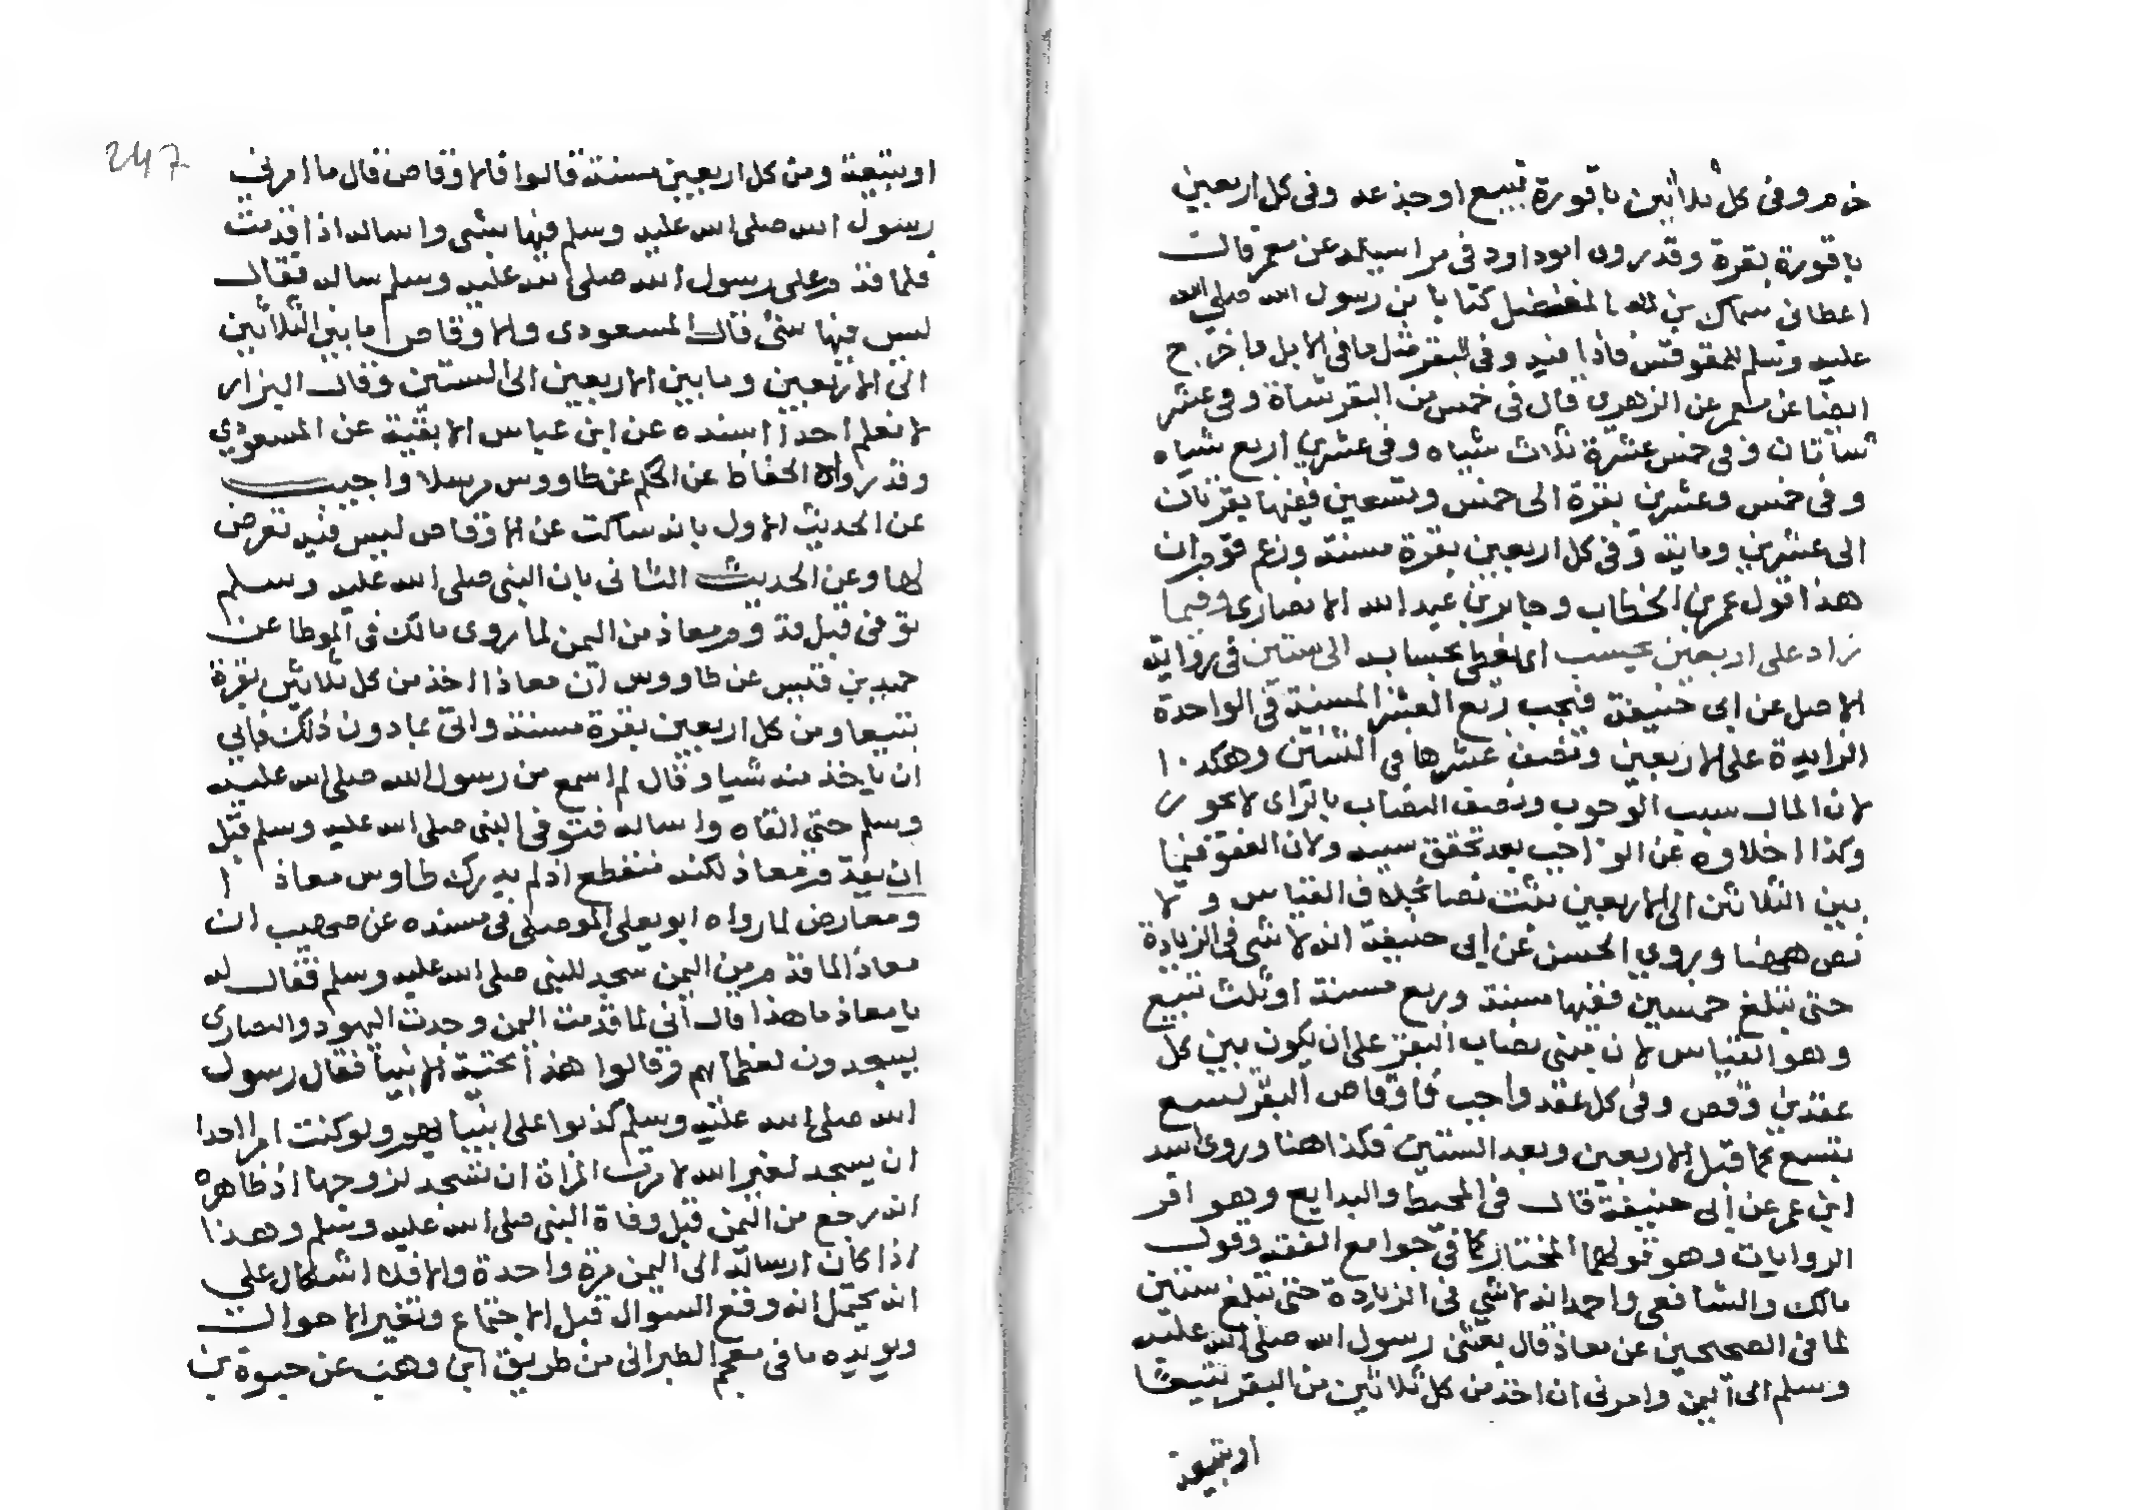 خرم وفي كل ثلاثين باقورة تبيع او جذعه وفي كل اربعين
باقورة بقرة وقد روى ابوداود في مراسيله عن معمر قال
اعطاني سماك بن الفضل كتابا من رسول الله صلى الله
عليه وسلم للمقوقس فاذا فيه وفي البقر مثل ما في الابل واخرج
ايضا عن معمر عن الزهري قال في خمس من البقر شاة وفي عشر
شاتان وفي خمس عشرة ثلاث شياه وفي عشرين اربع شياه
وفي خمس وعشرين بقرة الى خمس وتسعين ففيها بقرتان
الى عشرين وماية وفي كل اربعين بقرة مسنة وزعم قوم ان
هذا قول عمر بن الخطاب وجابر بن عبد الله الانصاري وفيما
زاد على اربعين يحسب اي يعطى بحسابه الى ستين في رواية
الاصل عن ابي حنيفة فيجب ربع العشر المسنة في الواحدة
الزايدة على الاربعين ونصف عشرها في الثنتين وهكذا
لان المال سبب الوجوب ونصف النصاب بالراي لا يجوز
وكذا اخلاوه عن الواجب بعد تحقق سببه ولان العفو فيما
بين الثلاثين الى الاربعين ثبت نصا بخلاف القياس ولا
نص ههنا وروي الحسن عن ابي حنيفة انه لا شي في الزيادة
حتى تبلغ خمسين ففيها مسنة وربع مسنة او ثلث تبيع
وهو القياس لان مبنى نصاب البقر على ان يكون بين كل
عقدين وقص وفي كل عقد واجب فاوقاص البقر تسع
بتسع كما قبل الاربعين وبعد الستين فكذا هنا وروى اسد
ابن عمر عن ابي حنيفة قال في المحيط والبدايع وهو اقر
الروايات وهو قولهما المختار كما في جوامع الفقه وقول
مالك والشافعي واحمد انه لا شي في الزيادة حتى تبلغ ستين
لما في الصحيحين عن معاذ قال بعثني رسول الله صلى الله عليه
وسلم الى اليمن وامرني ان اخذ من كل ثلاثين من البقر تبيعا
او تبيعة
247
او تبيعة ومن كل اربعين مسنة قالوا فالاوقاص قال ما امرني
رسول الله صلى الله عليه وسلم فيها بشي واساله اذا قدمت
فلما قدم على رسول الله صلى الله عليه وسلم ساله فقال
ليس فيها شي قال المسعودي والاوقاص ما بين الثلاثين
الى الاربعين وما بين الاربعين الى الستين وقال البزار
لا نعلم احدا اسنده عن ابن عباس الا بقية عن المسعودي
وقد رواه الحفاظ عن الحكم عن طاووس مرسلا واجيب
عن الحديث الاول بانه ساكت عن الاوقاص ليس فيه تعرض
لها وعن الحديث الثاني بان النبي صلى الله عليه وسلم
توفي قبل قدوم معاذ من اليمن لما روى مالك في الموطا عن
حميد بن قيس عن طاووس ان معاذا اخذ من كل ثلاثين بقرة
تبيعا ومن كل اربعين بقرة مسنة واتى بما دون ذلك فابى
ان ياخذ منه شيا وقال لم اسمع من رسول الله صلى الله عليه
وسلم حتى القاه واساله فتوفي النبي صلى الله عليه وسلم قبل
ان يقدم معاذ لكنه منقطع اذ لم يدرك طاوس معاذا
ومعارض لما رواه ابو يعلى الموصلي في مسنده عن صهيب ان
معاذا لما قدم من اليمن سجد للنبي صلى الله عليه وسلم فقال له
يا معاذ ما هذا قال اني لما قدمت اليمن وجدت اليهود والنصارى
يسجدون لعظمايهم وقالوا هذا تحية الانبيا فقال رسول
الله صلى الله عليه وسلم كذبوا على انبيايهم ولو كنت امرا احدا
ان يسجد لغير الله لامرت المراة ان تسجد لزوجها اذ ظاهره
انه رجع من اليمن قبل وفاة النبي صلى الله عليه وسلم وهذا
اذا كان ارساله الى اليمن مرة واحدة والا فلا اشكال على
انه يحتمل انه وقع السوال قبل الاجتماع وتغير الاحوال
ويويده ما في معجم الطبراني من طريق ابن وهب عن حيوة بن